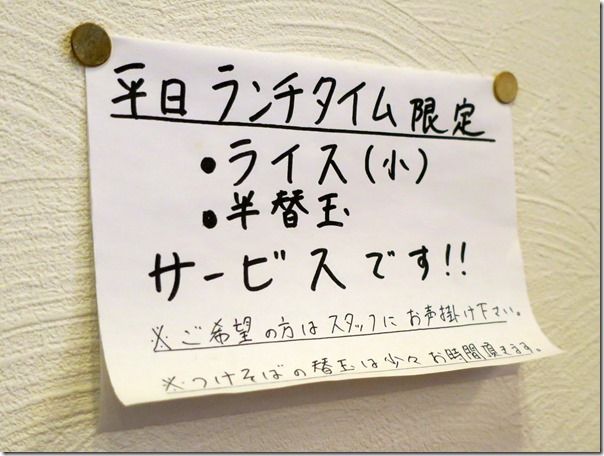 平日ランチタイム限定
•ライス(小)
•半替玉
サービスです!!
※ご希望の方はスタッフにお声掛け下さい。
※つけそばの替玉は少々お時間頂きます。